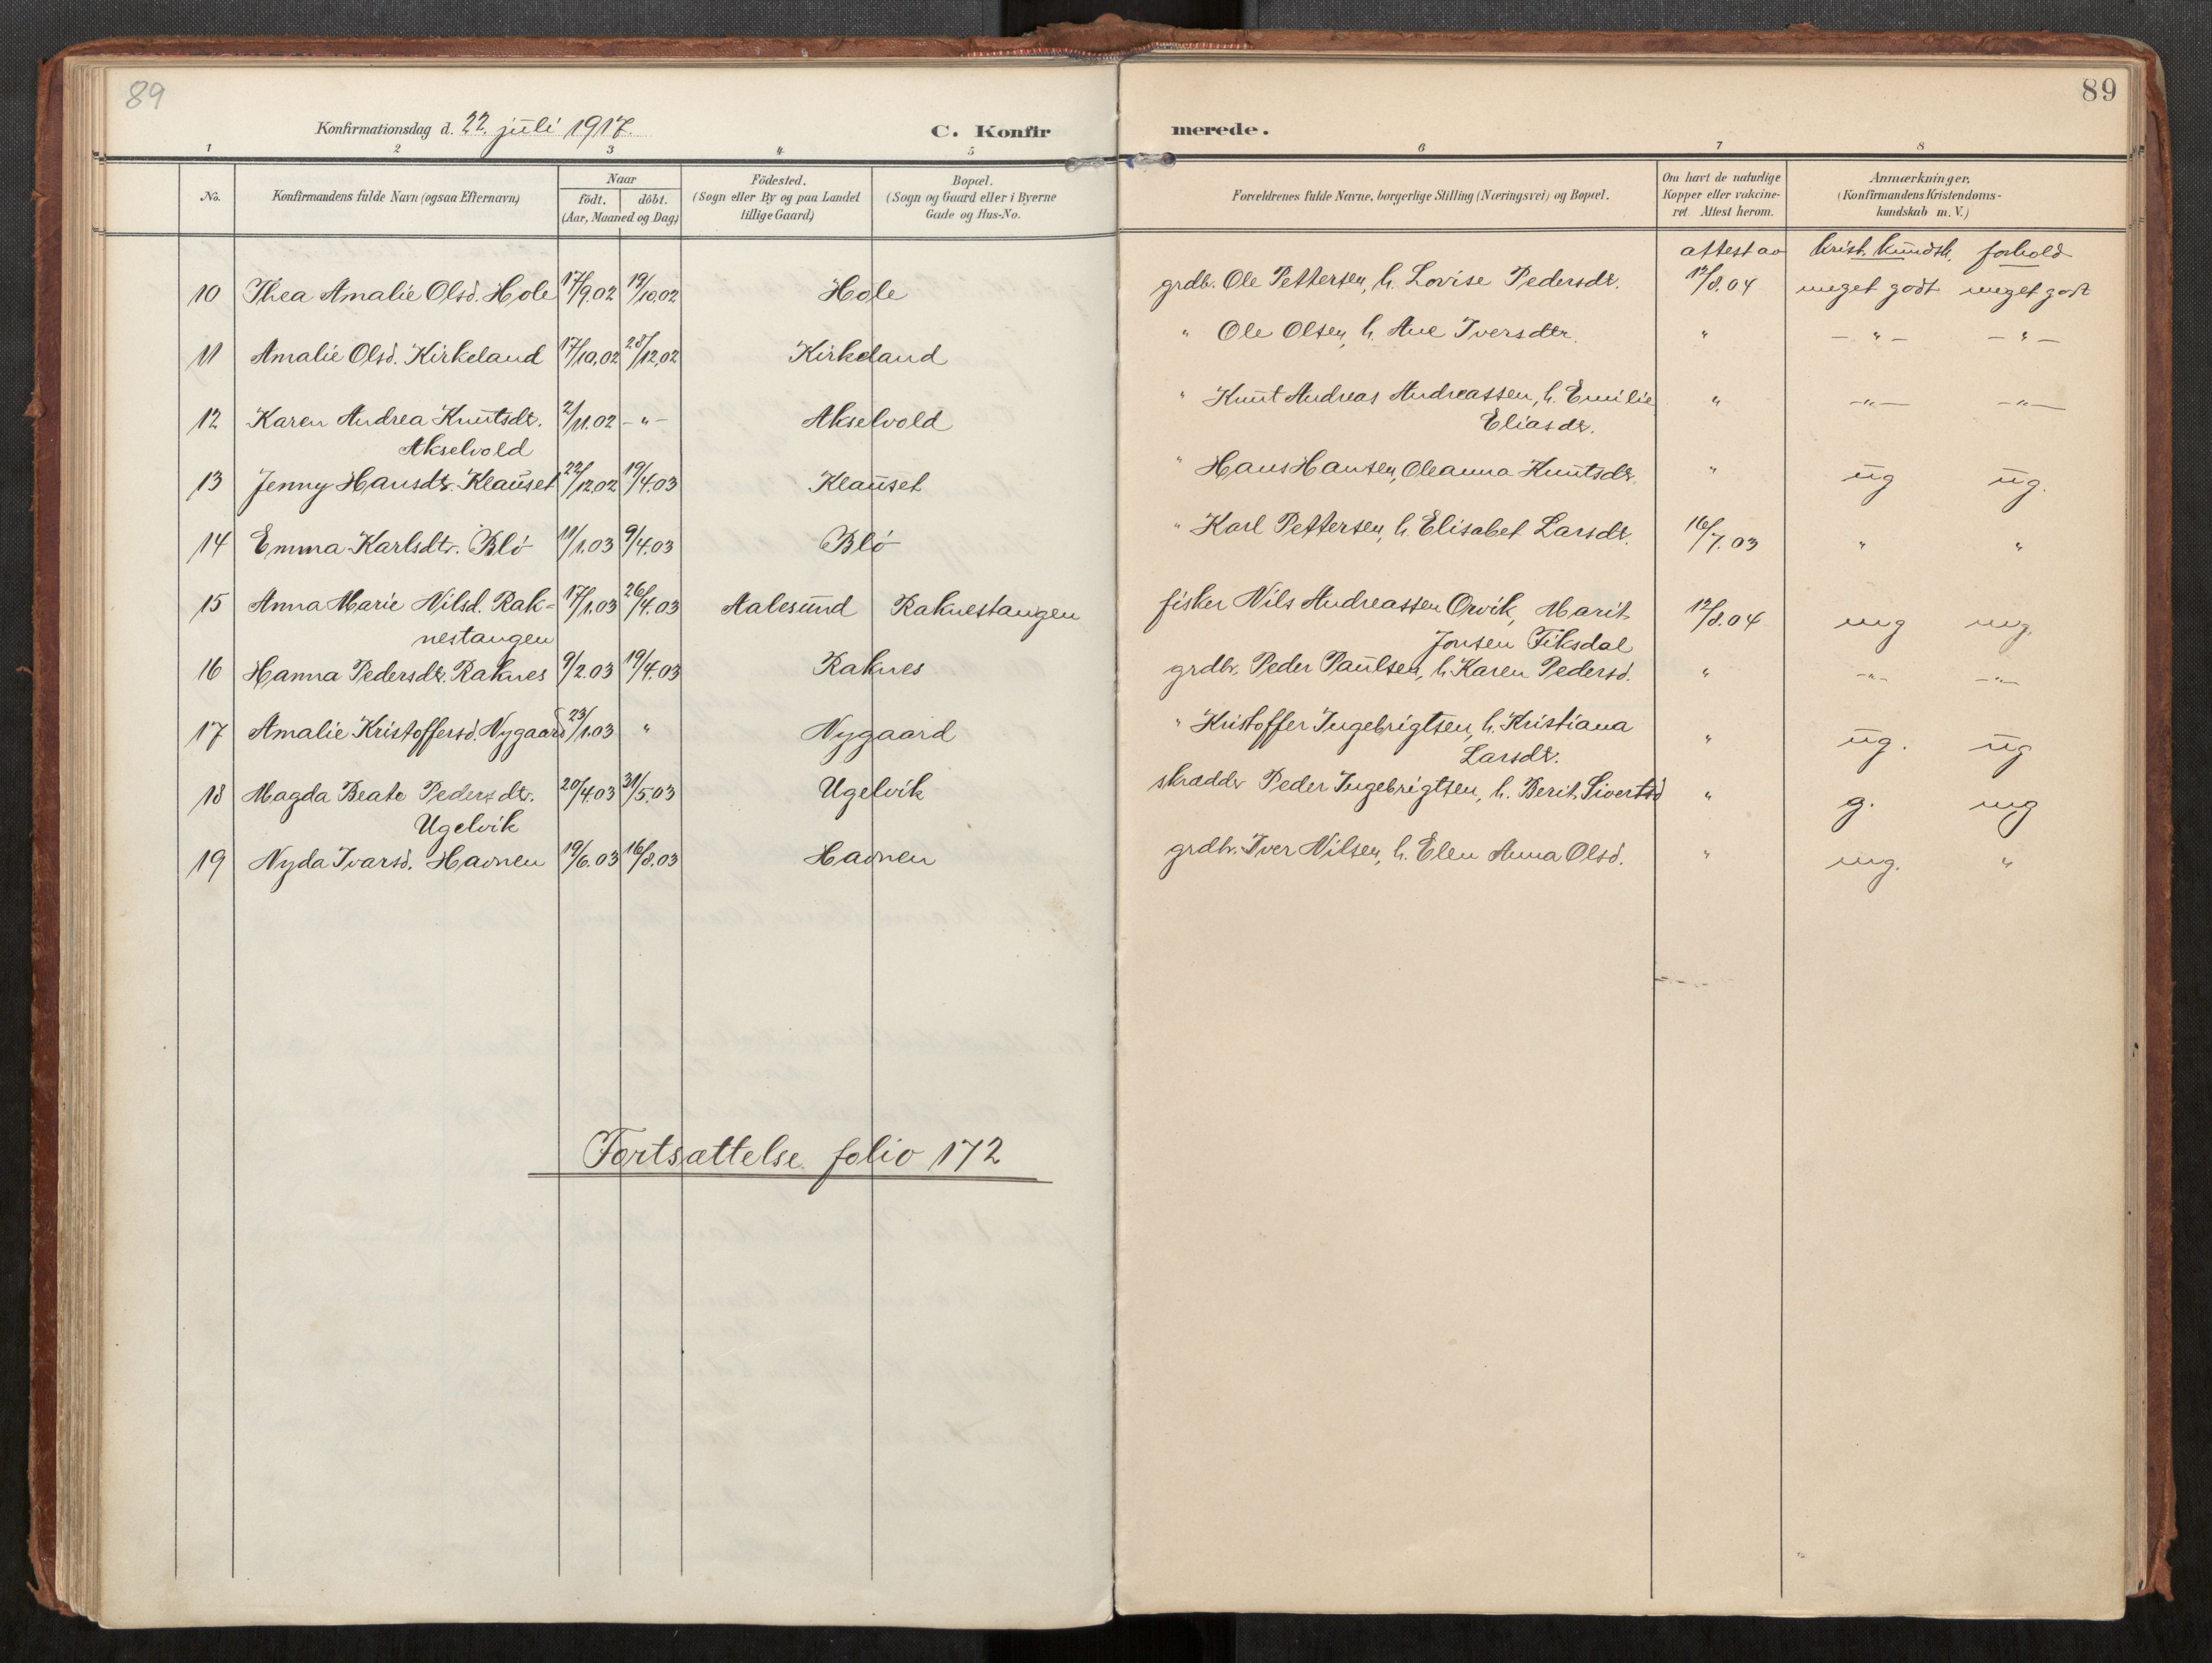 89
Konfirmationsdag d. 22. juli 1917.
C. Konfir
1 2 3 4 5
No.
Konfirmandens fulde Navn (ogsaa Efternavn)
Naar
födt. döbt.
(Aar, Maaned og Dag)
Födested.
(Sogn eller By og paa Landet
tillige Gaard)
Bopæl.
(Sogn og Gaard eller i Byerne
Gade og Hus-No.
10 Thea Amalie Olsd. Hole 17/9.02 19/10.02 Hole
11 Amalie Olsd. Kirkeland 17/10.02 28/12.02 Kirkeland
12 Karen Andrea Knutsdt. 2/11.02 - " - Akselvold
Akselvold
13 Jenny Hansdt. Klauset 22/12.02 19/4.03 Klauset
14 Emma Karlsdtr. Blö 11/1.03 9/4.03 Blö
15 Anna Marie Nilsd. Rak- 17/1.03 26/4.03 Aalesund Raknestangen
nestangen
16 Hanna Pedersdt. Raknes 9/2.03 19/4.03 Raknes
17 Amalie Kristoffersd. Nygaard 23/1.03 " Nygaard
18 Magda Beate Pedersdtr. 20/4.03 31/5.03 Ugelvik
Ugelvik
19 Nyda Ivarsd. Havnen 19/6.03 16/8.03 Havnen
Fortsættelse folio 172
89
merede.
6 7 8
Forældrenes fulde Navne, borgerlige Stilling (Næringsvei) og Bopæl.
Om havt de naturlige
Kopper eller vakcine-
ret. Attest herom.
Anmærkninger,
(Konfirmandens Kristendoms-
kundskab m. V.)
attest av krist. kundsk. forhold
grdb. Ole Pettersen, h. Lovise Pedersdt. 12/8.04 meget godt meget godt
" Ole Olsen, h. Ane Iversdtr. " - " - - " -
" Knut Andreas Andreassen, h. Emilie " - " - - " -
Eliasdt.
" Hans Hansen, Oleanna Knutsdt. " ug ug.
" Karl Pettersen, h. Elisabet Larsdt. 16/7.03 " "
fisker Nils Andreassen Orvik, Marit 12/8.04 mg mg.
Jonsen Fiksdal
grdbr. Peder Paulsen, h. Karen Pedersd. " - " - - " -
" Kristoffer Ingebrigtsen, h. Kristiana " ug. ug
Larsdt.
skrædder Peder Ingebrigtsen, h. Berit Sivertsd " g. mg
grdbr. Iver Nilsen, h. Elen Anna Olsd. " mg. "